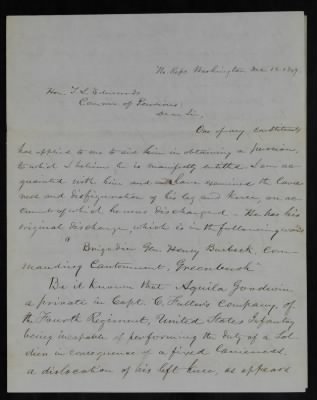 Ho. Reps Washington Dec 12 1849.
Hon. J. L. Edwards
Comm of Pensions
Dear Sir,
One of my constituents
has applied to me to aid him in obtaining a pension,
to which I believe he is manifestly entitled I am ac-
quainted with him and have examined the lame-
ness and disfiguration of his leg and knee, on ac-
count of which he was discharged - He has his
original discharge, which is in the following words
"Brigadier Gen. Henry Burbeck, Com-
manding Cantonment, Greenbush"
Be it known that Aquila Goodwin
a private in Capt. C. Fuller's Company, of
the Fourth Regiment, United States Infantry
being incapable of performing the duty of a Sol-
dier in consequence of a fixed lameness,
a dislocation of his left knee, as appears